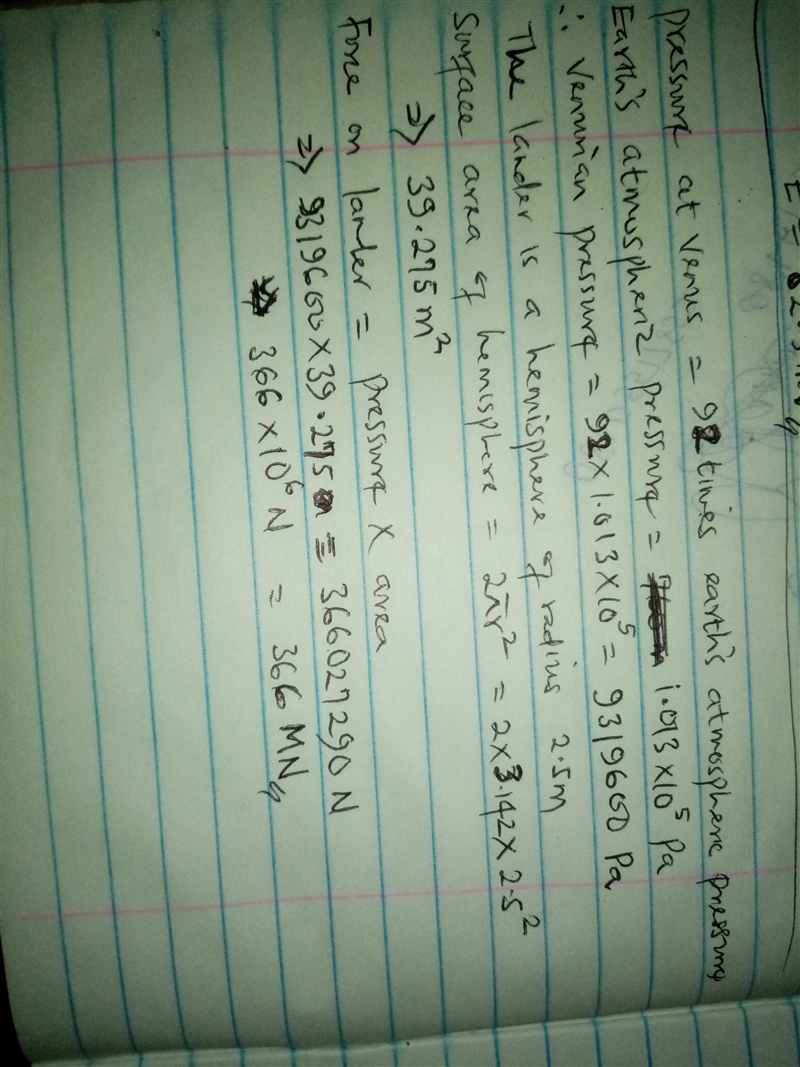 Pressure at Venus = 92 times earth's atmosphere pressure
Earth's atmospheric pressure = 1.013 x 10^5 Pa
∴ Venusian pressure = 92 x 1.013 x 10^5 = 9319600 Pa
The lander is a hemisphere of radius 2.5m
Surface area of hemisphere = 2πr^2 = 2 x 3.142 x 2.5^2
⇒ 39.275 m^2
Force on lander = pressure x area
⇒ 9319600 x 39.275 = 366027290 N
366 x 10^6 N = 366 MN